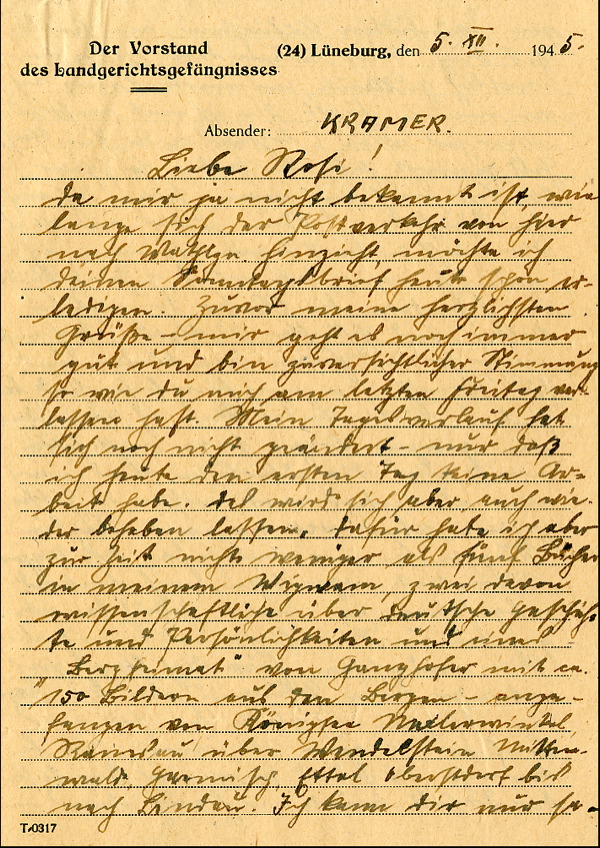 Der Vorstand
des Landgerichtsgefängnisses
(24) Lüneburg, den 5. XII. 1945.
Absender: KRAMER.
Liebe Rosi!
da mir ja nicht bekannt ist wie
lange sich der Postverkehr von hier
nach hinzieht, möchte ich
deinen Sonntagsbrief heute schon er-
ledigen. Zuvor meine herzlichsten
Grüße – mir geht es noch immer
gut und bin zuversichtlicher Stimmung
so wie du mich am letzten Freitag ver-
lassen hast. Mein Tagesverlauf hat
sich noch nicht geändert – nur daß
ich heute den ersten Tag keine Ar-
beit habe. Das wird sich aber auch wie-
der beheben lassen, dafür habe ich aber
zur Zeit nicht weniger als fünf Bücher
in meinem Wigwam, zwei davon
wissenschaftliche über deutsche Geschich-
te und Persönlichkeiten und eines
"Bergheimat" von Ganghofer mit ca.
150 Bildern aus den Bergen – ange-
fangen von Königsee
Ramsau über Wendelstein Mitten-
wald, Garmisch, Ettal Oberstdorf bis
nach Lindau. Ich kann dir nur sa-
T-0317